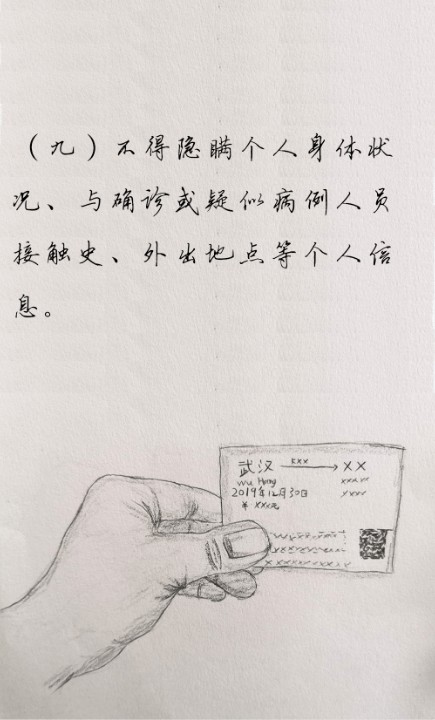 （九）不得隐瞒个人身体状
况、与确诊或疑似病例人员
接触史、外出地点等个人信
息。
武汉 xxx XX
Wu Hang xxxxx
2019年12月30日 xxxx
¥ xxx元